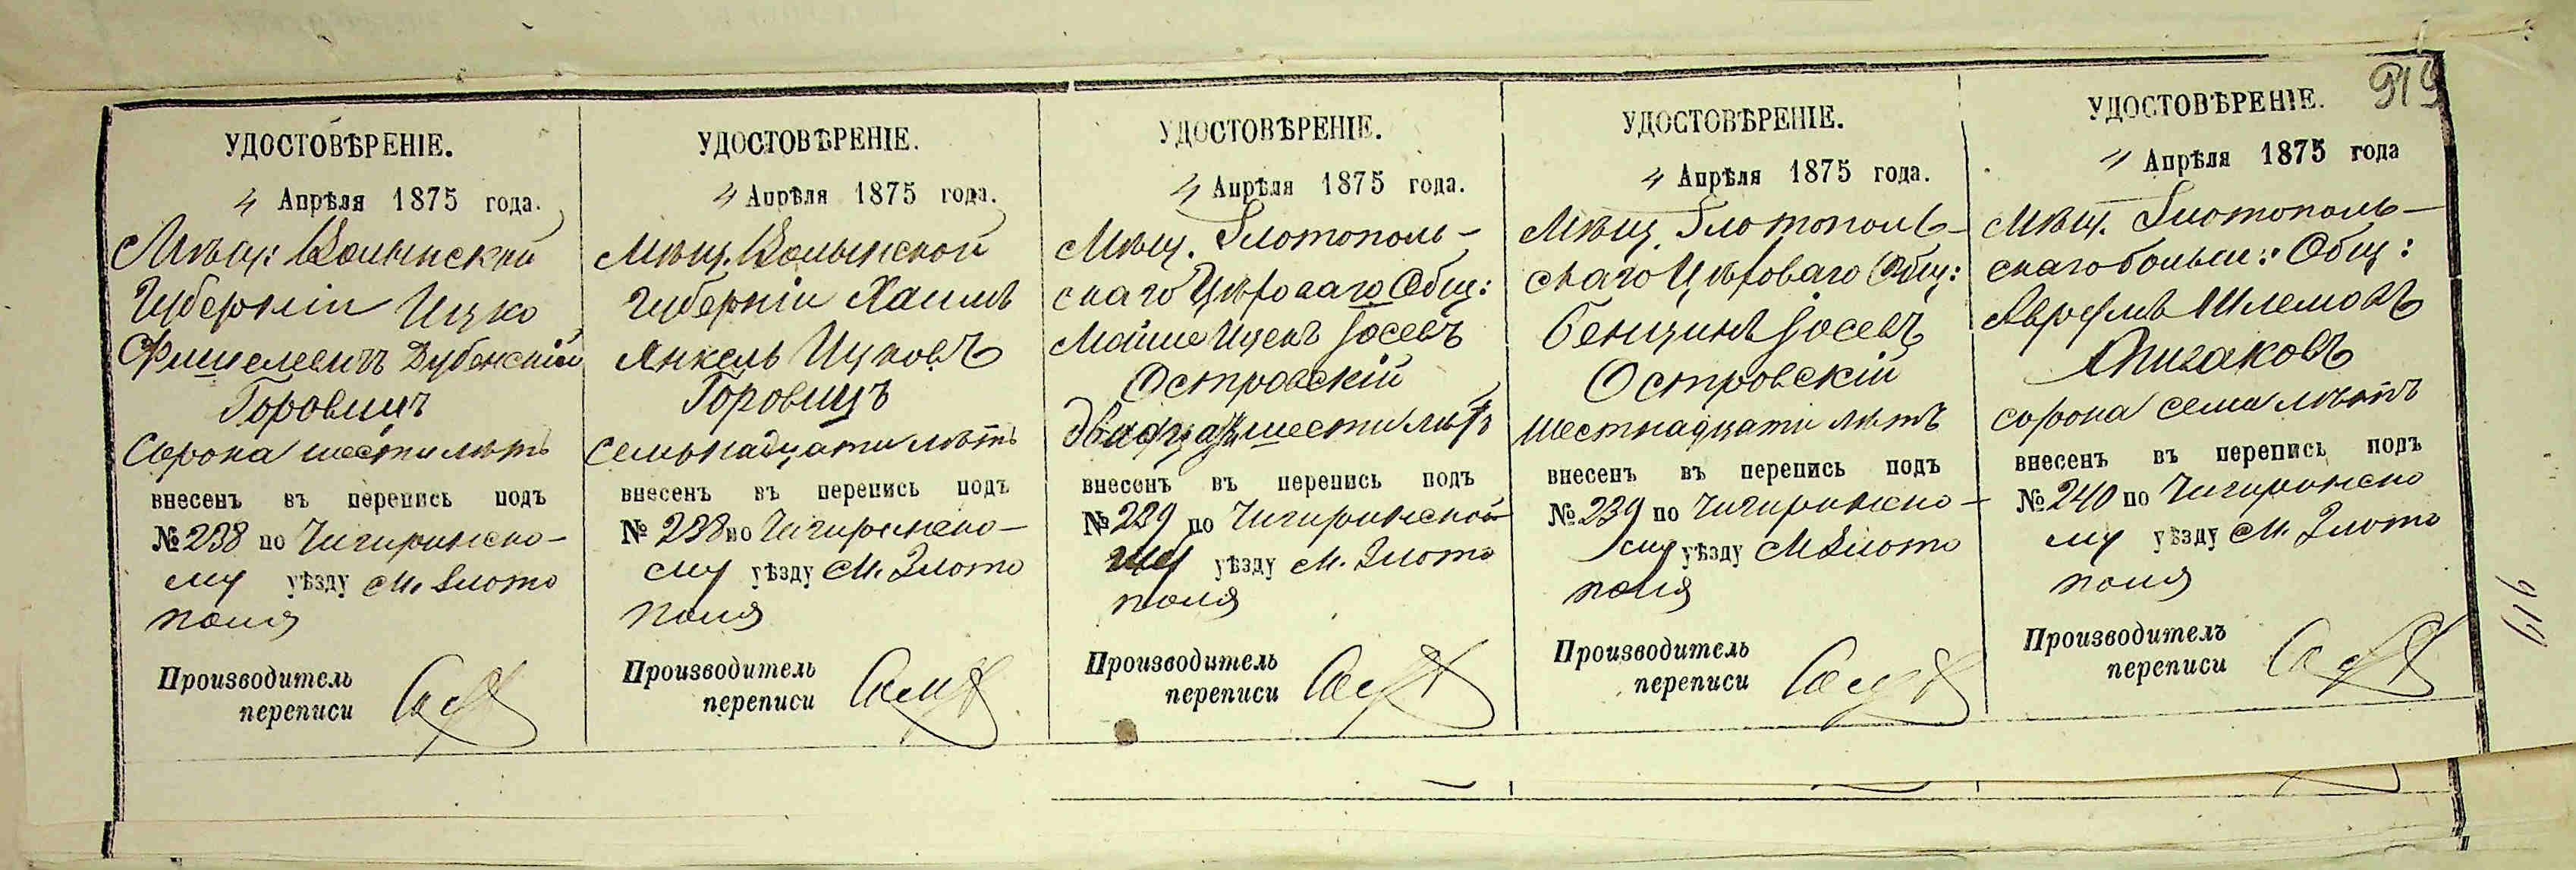 919
УДОСТОВѢРЕНІЕ.
4 Апрѣля 1875 года.
Мѣщ: Волынской
Губерніи Ицко
Фишелевичъ Дубенскій
Горовицъ
Сорока шести лѣтъ
внесенъ въ перепись подъ
№ 238 по Чигиринско-
му уѣзду М. Злото
поля
Производитель
переписи
УДОСТОВѢРЕНІЕ.
4 Апрѣля 1875 года.
Мѣщ. Волынской
Губерніи Хаимъ
Янкель Ицковъ
Горовицъ
Семьнадцати лѣтъ
внесенъ въ перепись подъ
№ 238 по Чигиринско-
му уѣзду М. Злото
поля
Производитель
переписи
УДОСТОВѢРЕНІЕ.
4 Апрѣля 1875 года.
Мѣщ. Злотополь-
скаго Цѣховаго Общ:
Мойше Іосевъ
Островскій
двадцати шести лѣтъ
внесенъ въ перепись подъ
№ 239 по Чигиринской
уѣзду М. Злото
поля
Производитель
переписи
УДОСТОВѢРЕНІЕ.
4 Апрѣля 1875 года.
Мѣщ. Злотополь-
скаго Цѣховаго Общ:
Бенцинъ Іосевъ
Островскій
шестнадцати лѣтъ
внесенъ въ перепись подъ
№ 239 по Чигиринско-
му уѣзду М Злото
поля
Производитель
переписи
УДОСТОВѢРЕНІЕ.
4 Апрѣля 1875 года
Мѣщ. Злотополь-
скаго больш: Общ:
Аврумъ Шлемовъ
Спигаковъ
сорока семи лѣтъ
внесенъ въ перепись подъ
№ 240 по Чигиринско
му уѣзду М. Злото
поля
Производитель
переписи
919